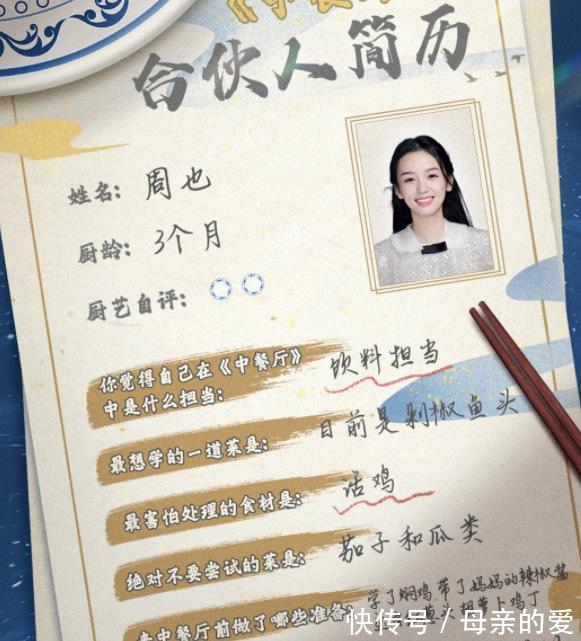 合伙人简历
姓名: 周也
厨龄: 3个月
厨艺自评:
你觉得自己在《中餐厅》
中是什么担当: 饮料担当
最想学的一道菜是: 目前是剁椒鱼头
最害怕处理的食材是: 活鸡
绝对不要尝试的菜是: 茄子和瓜类
学了焖鸡带了妈妈的辣椒酱
中餐厅前做了哪些准备:
快传号 / 母亲的爱